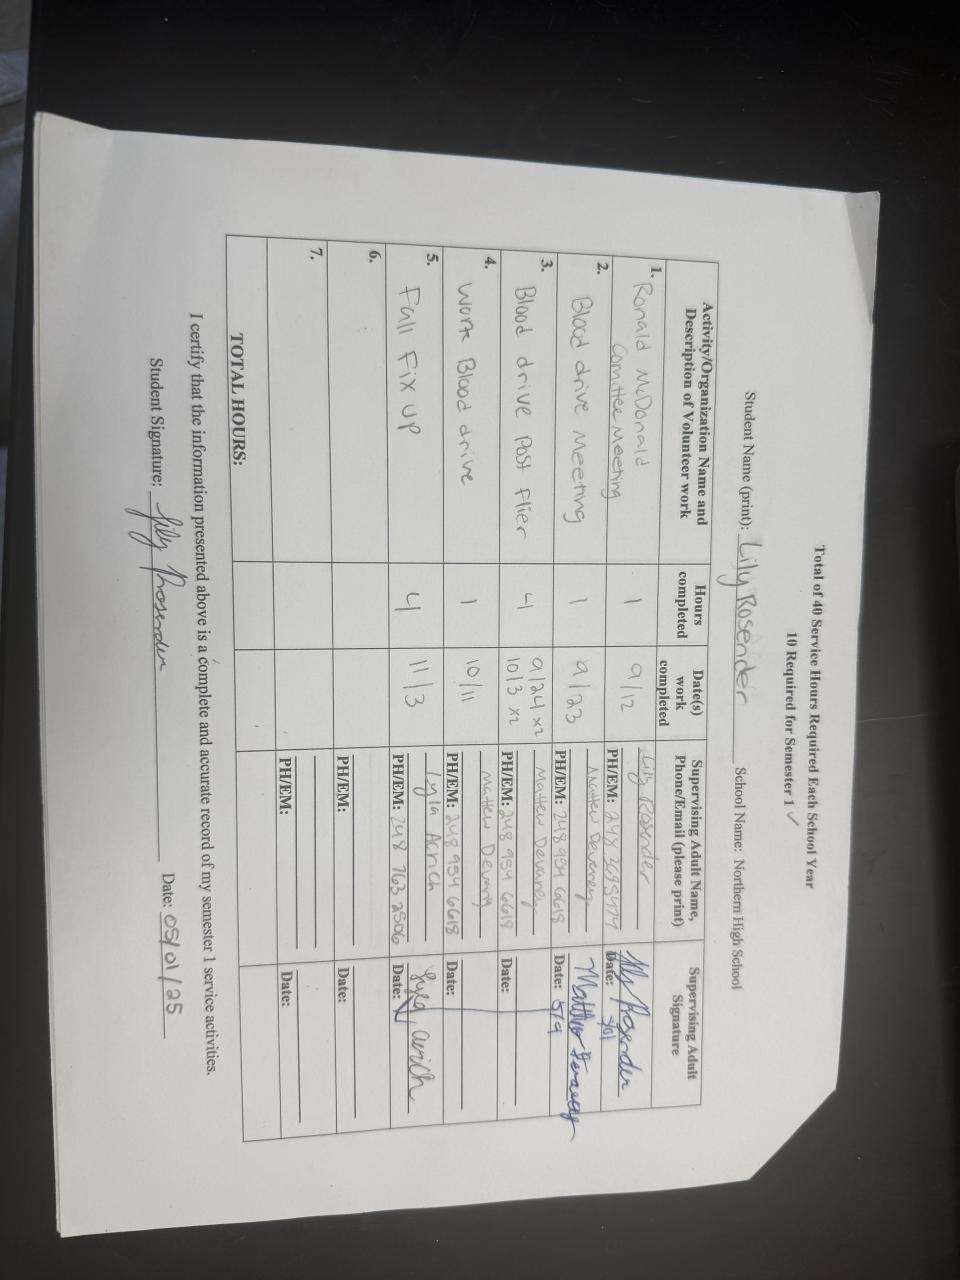 Total of 40 Service Hours Required Each School Year
10 Required for Semester 1 ✓
Student Name (print): Lily Rosender School Name: Northern High School
Activity/Organization Name and
Description of Volunteer work
Hours
completed
Date(s)
work
completed
Supervising Adult Name,
Phone/Email (please print)
Supervising Adult
Signature
1. Ronald McDonald
Comittee Meeting
1
9/12
Lily Rosender
PH/EM: 248
Lily Rosender
Date:
2. Blood drive Meeting
1
9/23
Matthew
PH/EM: 248 954 6618
Matthew
Date: 5/9
3. Blood drive Post flier
4
9/24 x2
10/3 x2
Mattew Devaney
PH/EM: 248 954 6618
Date:
4. Work Blood drive
1
10/11
Mattew
PH/EM: 248 954 6618
Date:
5. Fall Fix up
4
11/3
Lyla Acrich
PH/EM: 248 763 2506
Lyla Acrich
Date:
6.
PH/EM:
Date:
7.
PH/EM:
Date:
TOTAL HOURS:
I certify that the information presented above is a complete and accurate record of my semester 1 service activities.
Student Signature: Lily Rosender Date: 05/01/25